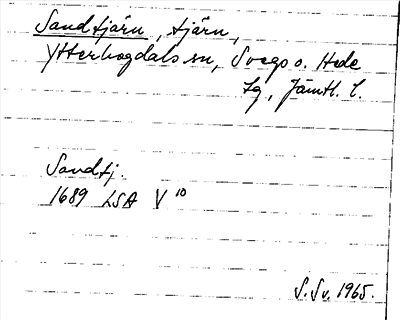 Sandtjärn, tjärn,
Ytterhogdals sn, Svegs o. Hede
tg, Jämtl. l.
Sandtj.
1689 LSA V 10
S. Sv. 1965.